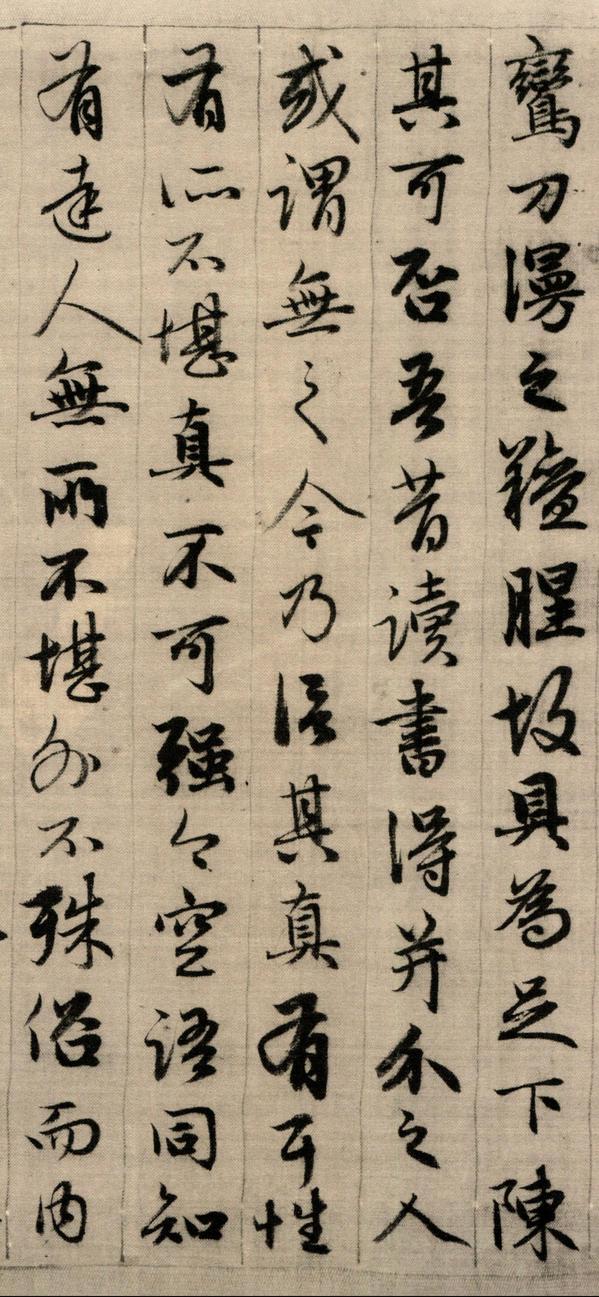 鸞刀漫之羶腥故具為足下陳
其可否吾昔讀書得并介之人
或謂無之今乃信其真有耳性
有所不堪真不可强今空語同知
有達人無所不堪外不殊俗而内